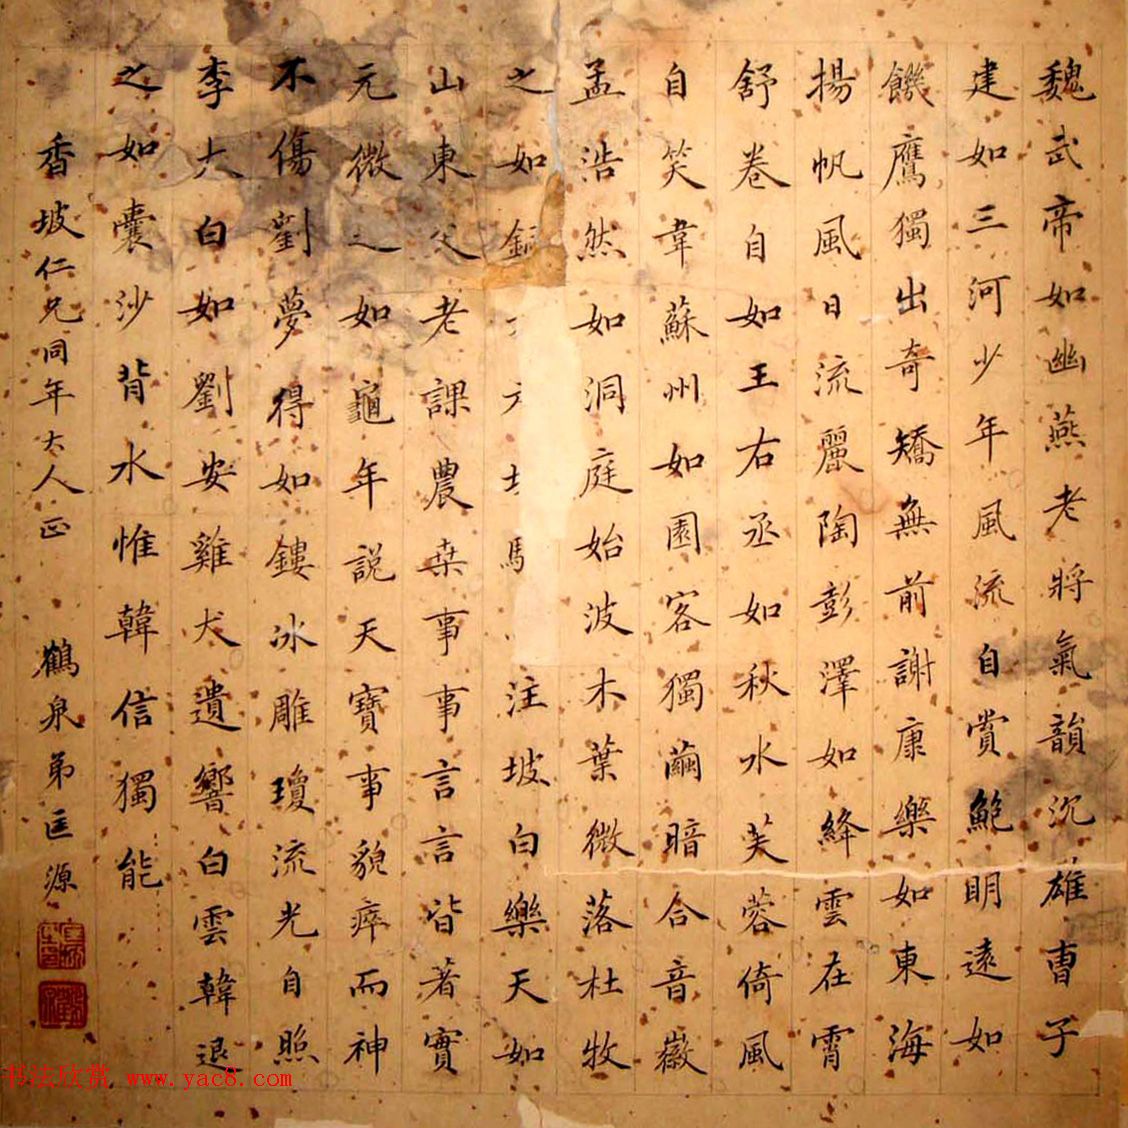 魏武帝如幽燕老將氣韻沉雄曹子
建如三河少年風流自賞鮑明遠如
饑鷹獨出奇矯無前謝康樂如東海
揚帆風日流麗陶彭澤如絳雲在霄
舒卷自如王右丞如秋水芙蓉倚風
自笑韋蘇州如園客獨繭暗合音徽
孟浩然如洞庭始波木葉微落杜牧
之如銅 注坡白樂天如
山東父老課農桑事事言言皆著實
元微之如龜年說天寶事貌瘁而神
不傷劉夢得如鏤冰雕瓊流光自照
李太白如劉安雞犬遺響白雲韓退
之如囊沙背水惟韓信獨能
香坡仁兄同年大人正 鶴泉弟匡源
书法欣赏 www.yac8.com